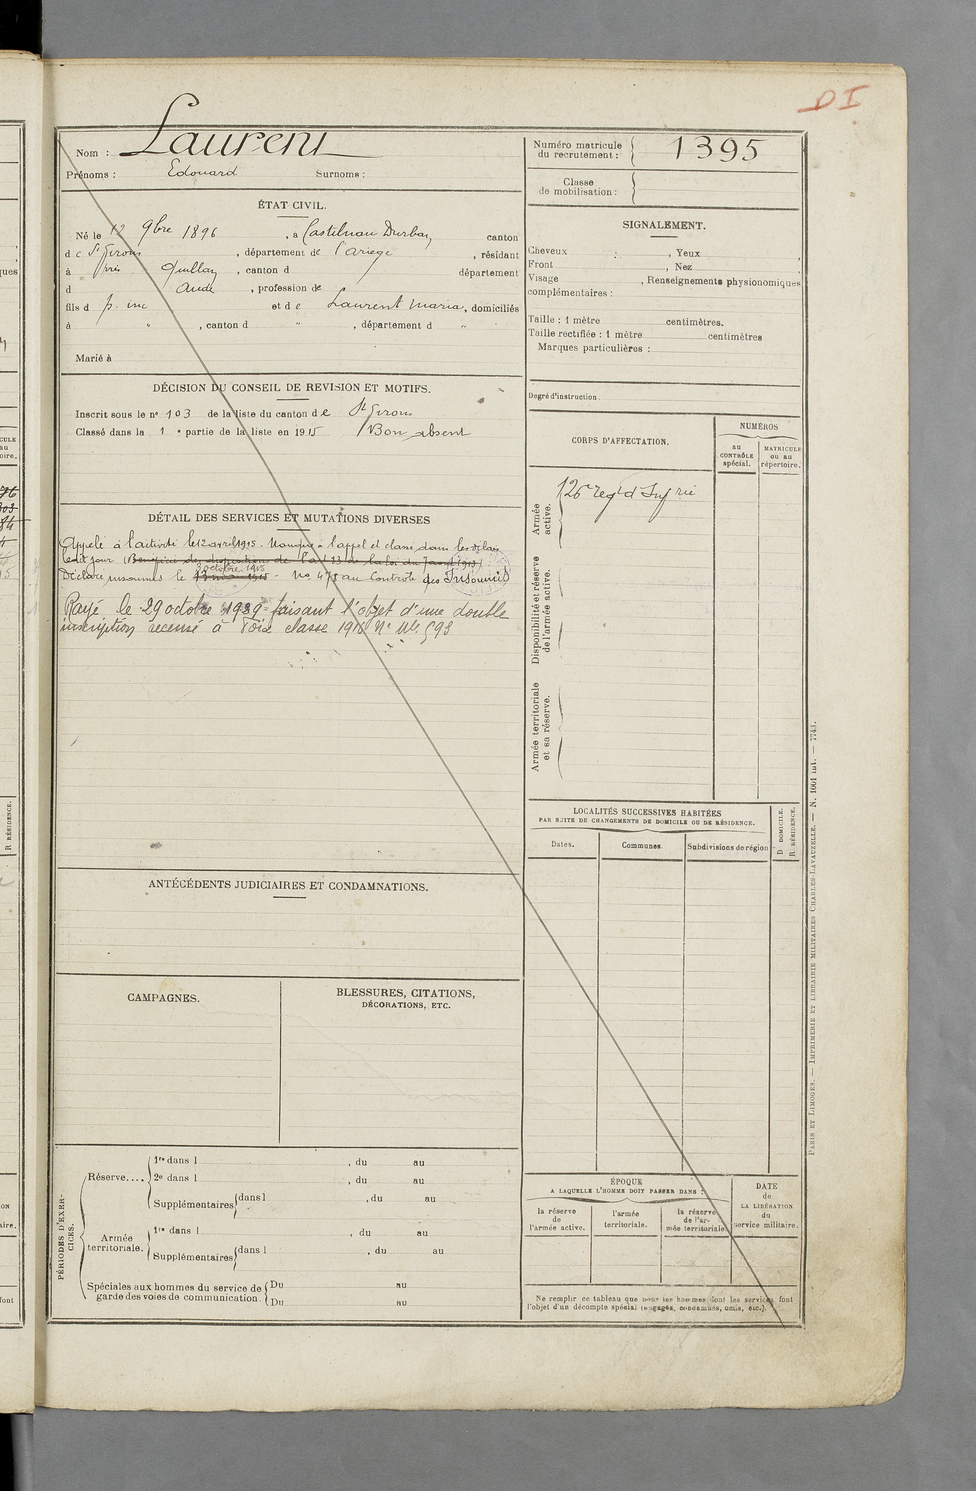 DI
Nom : Laurent
Prénoms : Edouard Surnoms :
ÉTAT CIVIL.
Né le 12 9bre 1896, à Castelnau Durban canton
de St Girons, département de l'Ariège, résidant
à près Quillan, canton d département
d Aude, profession de
fils d p. inc et de Laurent Maria, domiciliés
à " , canton d " , département d "
Marié à
DÉCISION DU CONSEIL DE REVISION ET MOTIFS.
Inscrit sous le nº 103 de la liste du canton de St Girons
Classé dans la 1 e partie de la liste en 1915 Bon absent
DÉTAIL DES SERVICES ET MUTATIONS DIVERSES
Appelé à l'activité le 12 avril 1915. Manque à l'appel et classé dans les délais
ledit jour (Bénéficie des dispositions de l'art 23 de la loi du 7 août 1913)
9 octobre 1915
Déclaré insoumis le 13 mai 1915 - No 475 au Contrôle des Insoumis
Rayé le 29 octobre 1929 faisant l'objet d'une double
inscription recensé à Foix classe 1916 Nº Mle 593
ANTÉCÉDENTS JUDICIAIRES ET CONDAMNATIONS.
CAMPAGNES.
BLESSURES, CITATIONS,
DÉCORATIONS, ETC.
PÉRIODES D'EXERCICES.
Réserve....
1re dans l , du au
2e dans l , du au
Supplémentaires dans l , du au
Armée
territoriale.
1re dans l , du au
Supplémentaires dans l , du au
Spéciales aux hommes du service de
garde des voies de communication.
Du au
Du au
Numéro matricule
du recrutement : 1395
Classe
de mobilisation :
SIGNALEMENT.
Cheveux , Yeux
Front , Nez
Visage , Renseignements physionomiques
complémentaires :
Taille : 1 mètre centimètres.
Taille rectifiée : 1 mètre centimètres
Marques particulières :
Degré d'instruction.
CORPS D'AFFECTATION.
NUMÉROS
au
CONTRÔLE
spécial.
MATRICULE
ou au
répertoire.
Armée
active.
126e regt d'Infrie
Disponibilité et réserve
de l'armée active.
Armée territoriale
et sa réserve.
LOCALITÉS SUCCESSIVES HABITÉES
PAR SUITE DE CHANGEMENTS DE DOMICILE OU DE RÉSIDENCE.
Dates. Communes. Subdivisions de région
D DOMICILE.
R RÉSIDENCE.
ÉPOQUE
A LAQUELLE L'HOMME DOIT PASSER DANS :
la réserve
de
l'armée active.
l'armée
territoriale.
la réserve
de l'ar-
mée territoriale.
DATE
de
LA LIBÉRATION
du
service militaire.
Ne remplir ce tableau que pour les hommes dont les services font
l'objet d'un décompte spécial (engagés, condamnés, omis, etc.).
PARIS ET LIMOGES. — IMPRIMERIE ET LIBRAIRIE MILITAIRES CHARLES-LAVAUZELLE. — N. 1001 int. — 7743.